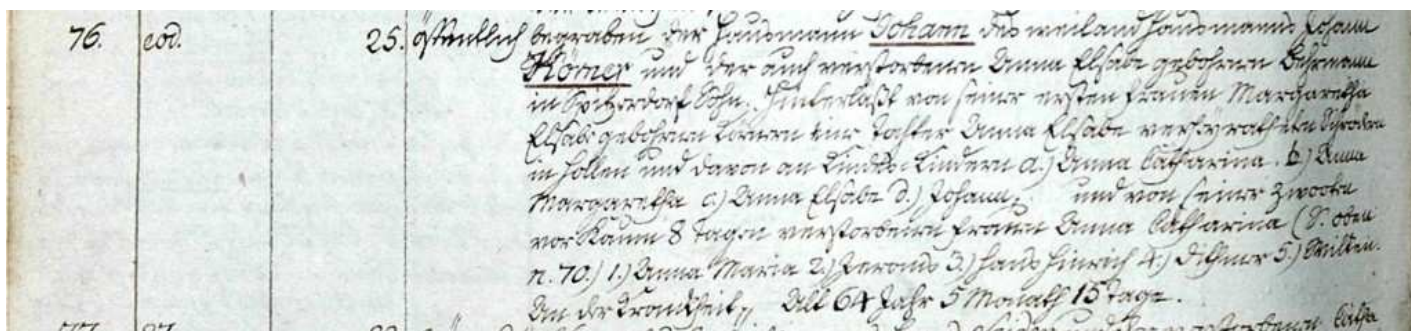 76. eod. 25. öffentlich begraben der Hausmann Johann des weiland Hausmanns Johann
Körner und der auch verstorbenen Anna Elsabe gebohrnen Behrmann
in Spitzerdorf Sohn. Hinterläßt von seiner ersten Frauen Margaretha
Elsabe gebohrnen eine Tochter Anna Elsabe verheyrathete Schrödern
in Holm und davon an Kindes-Kindern a.) Anna Catharina. b.) Anna
Margaretha c.) Anna Elsabe d.) Johann, und von seiner zwoten
vor kaum 8 Tagen verstorbenen Frauen Anna Catharina (S. oben
n. 70.) 1.) Anna Maria 2.) 3.) Hans Hinrich 4.) 5.)
An der Krankheit,, Alt 64 Jahr 5 Monath 15 Tage.